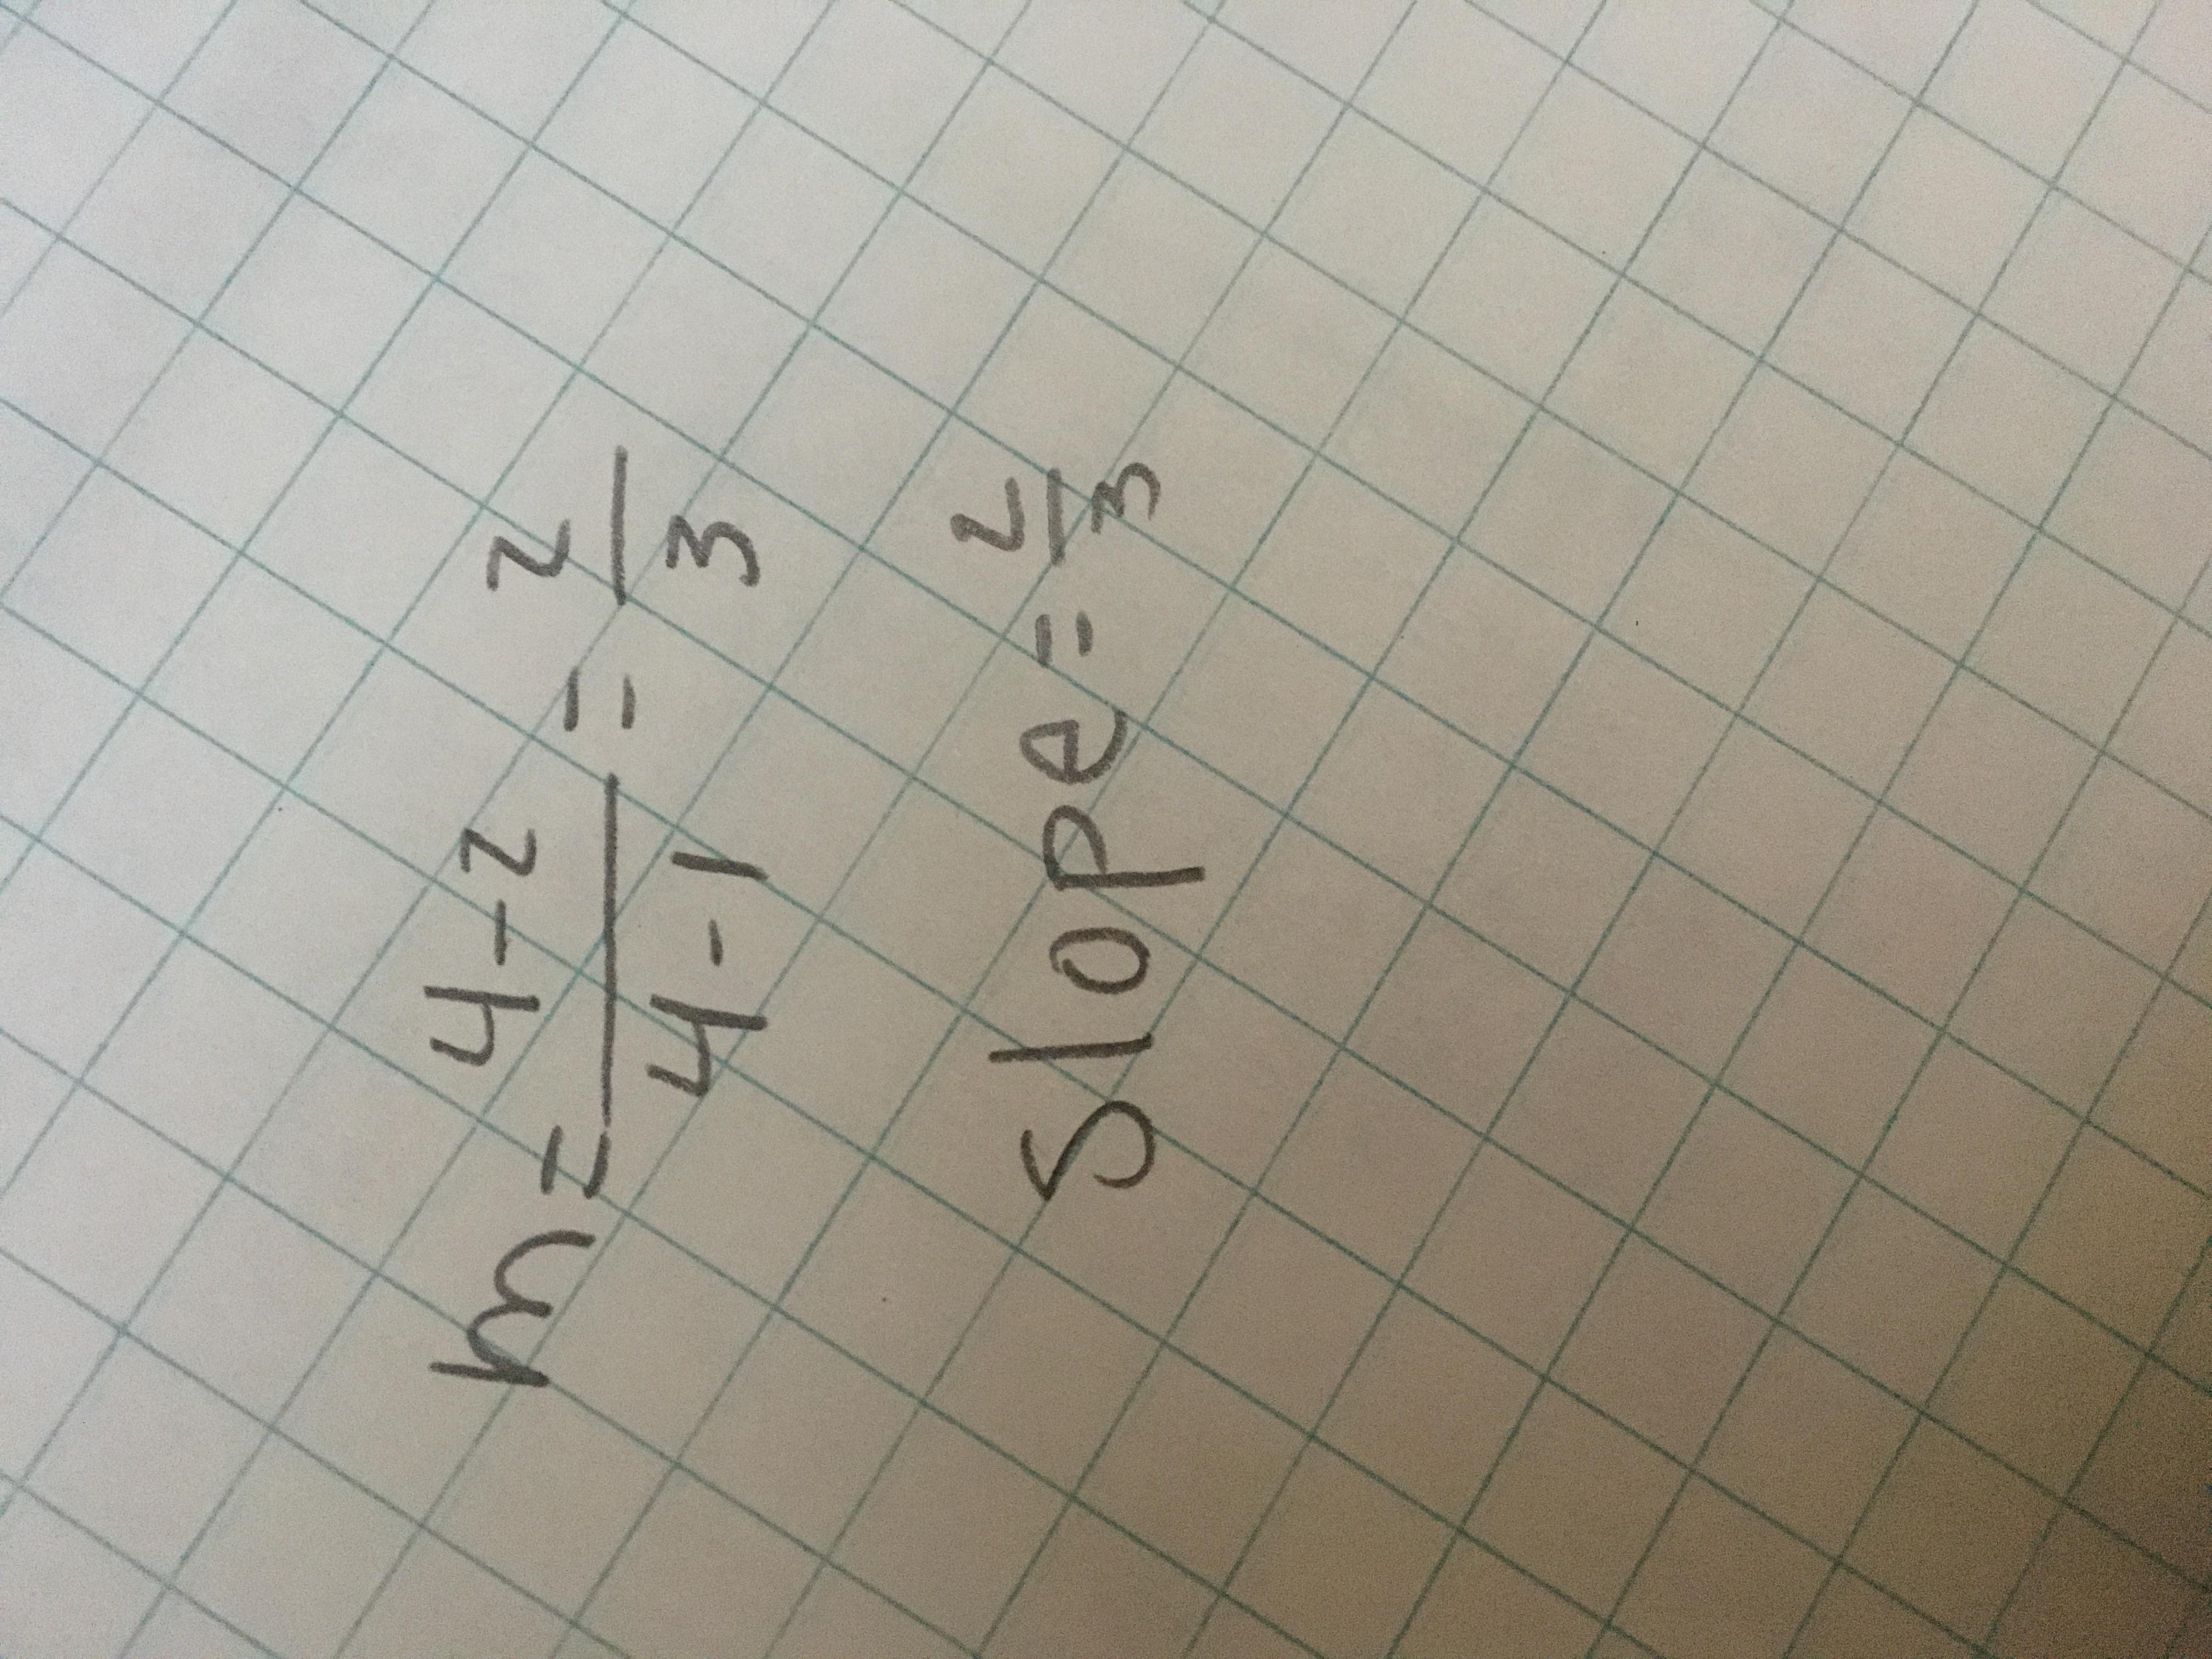 m = (4-2)/(4-1) = 2/3
Slope = 2/3